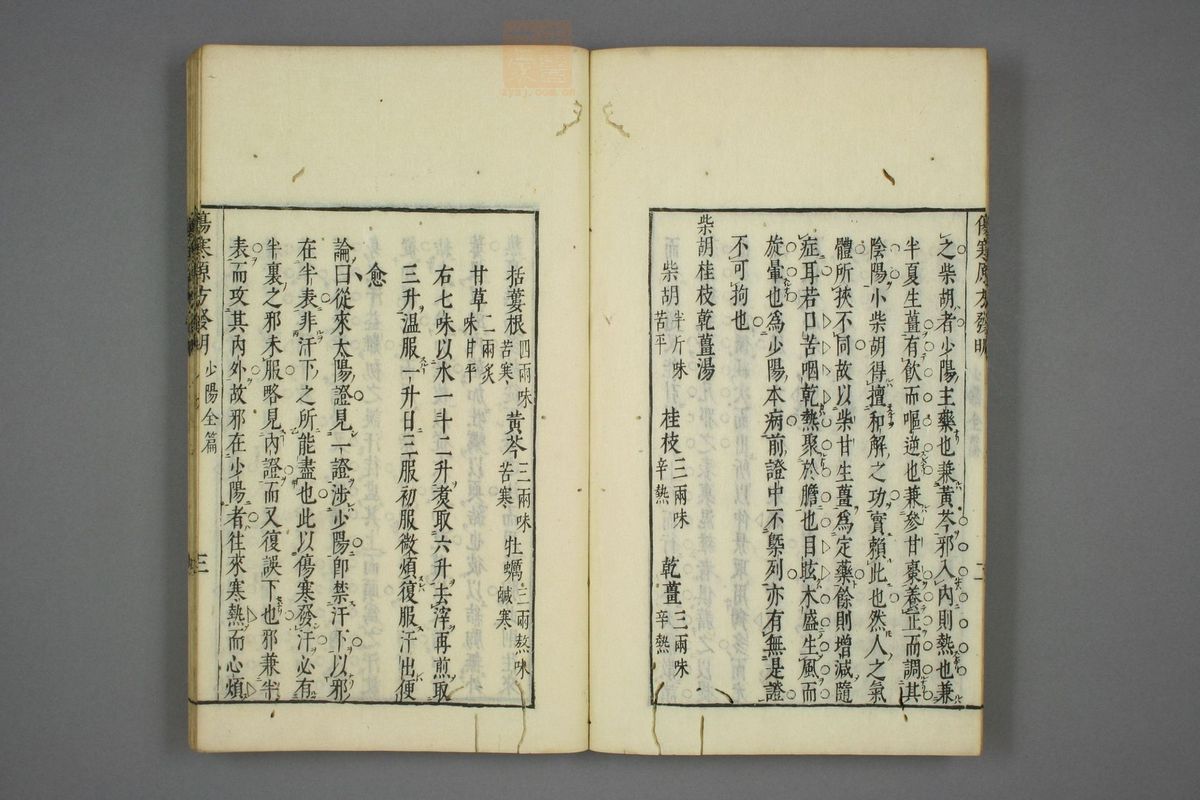 傷寒原方發明
之柴胡者少陽主藥也兼黃芩邪入內則熱也兼
半夏生薑有飲而嘔逆也兼參甘棗養正而調其
陰陽小柴胡得擅和解之功實賴此也然人之氣
體所挾不同故以柴甘生薑爲定藥餘則增減隨
症耳若口苦咽乾熱聚於膽也目眩木盛生風而
旋暈也爲少陽本病前證中不槩列亦有無是證
不可狥也
柴胡桂枝乾薑湯
柴胡半斤味苦平 桂枝三兩味辛熱 乾薑三兩味辛熱
括蔞根四兩味苦寒 黃芩三兩味苦寒 牡蠣三兩熬味鹹寒
甘草二兩炙味甘平
右七味以水一斗二升煑取六升去滓再煎取
三升溫服一升日三服初服微煩復服汗出便
愈
論曰從來太陽證見一證涉少陽卽禁汗下以邪
在半表非汗下之所能盡也此以傷寒發汗必有
半裏之邪未服略見內證而又復誤下也邪兼半
表而攻其內外故邪在少陽者往來寒熱而心煩
傷寒原方發明 少陽全篇 三
zysj.com.cn